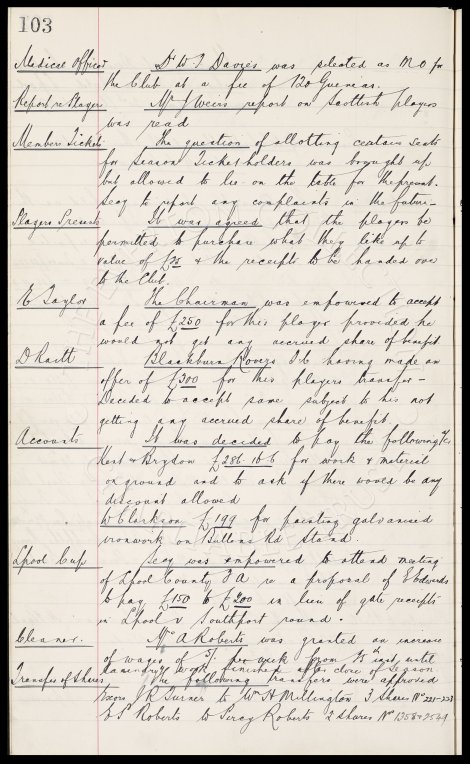 103
Medical Officer Dr W J Davies was selected as M O for
the Club at a fee of 120 Guineas.
Report re Players Mr J Weirs report on Scottish players
was read
Members Tickets The question of allotting certain seats
for Season Ticket holders was brought up
but allowed to lie on the table for the present.
Secy to report any complaints in the future –
Players Presents It was agreed that the players be
permitted to purchase what they like up to
value of £25 & the receipts to be handed over
to the Club.
E Taylor The Chairman was empowered to accept
a fee of £250 for this player provided he
would not get any accrued share of benefit
D Raitt Blackburn Rovers F.C having made an
offer of £300 for this players transfer –
Decided to accept same subject to his not
getting any accrued share of benefit.
Accounts It was decided to pay the following a/cs
& Brydon £286.16.6 for work & material
on ground and to ask if there would be any
discount allowed
W Clarkson £199 for painting galvanised
ironwork on Bullens Rd Stand.
Lpool Cup Secy was empowered to attend meeting
of Lpool County F A re a proposal of E Edwards
to pay £150 to £200 in lieu of gate receipts
in Lpool v Southport round.
Cleaner. Mrs A Roberts was granted an increase
of wages of 5/- per week from inst until
work finished after close of season
Transfer of Shares The following transfers were approved
J R Turner to Wm H Millington 3 shares No 221-223
P Roberts to Percy Roberts 2 shares No 1358 & 2549